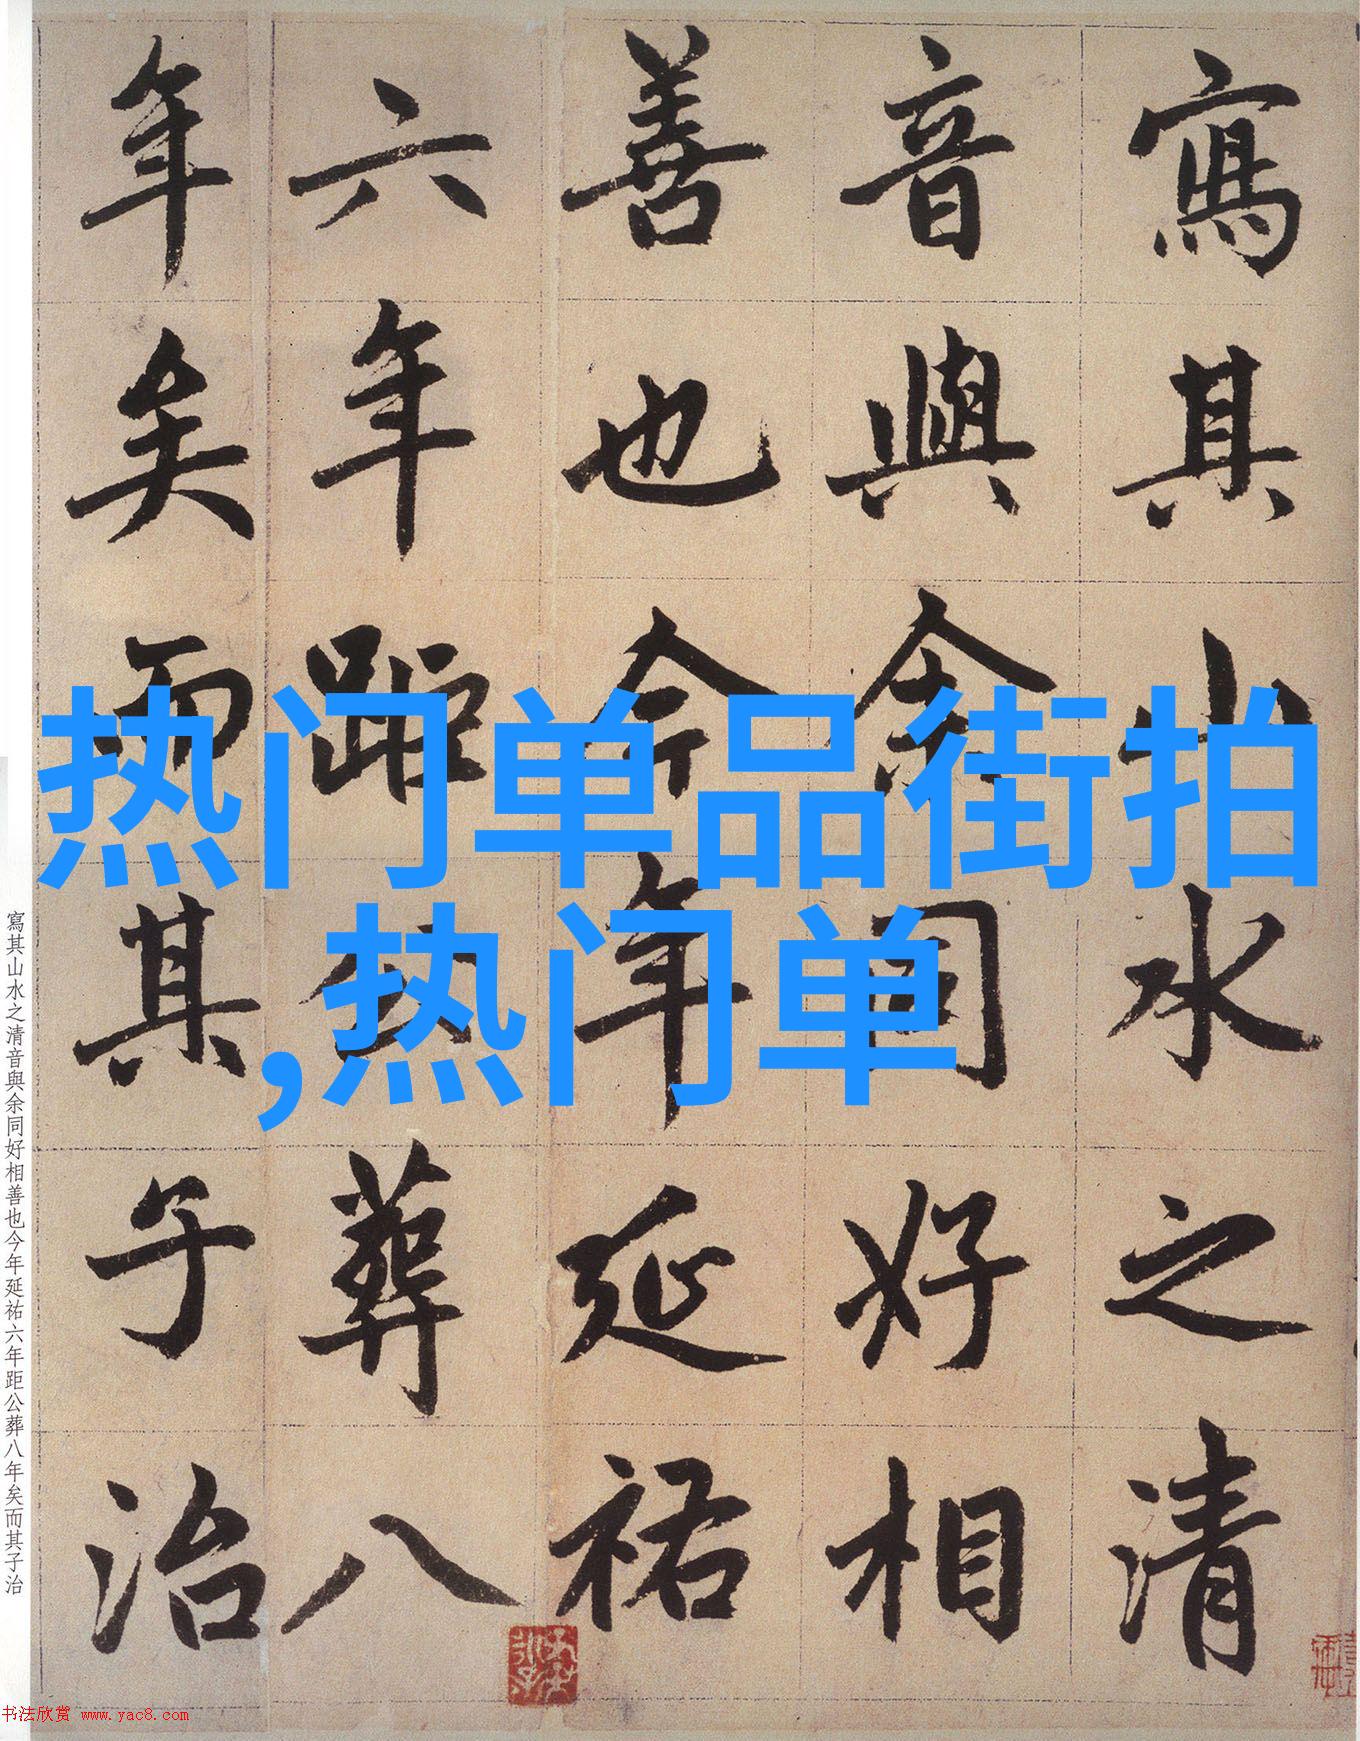 寫其山水之清
音與余同好相
善也今年延祐
六年距公葬八
年矣而其子治
热门单品街拍
,热门单
寫其山水之清音與余同好相善也今年延祐六年距公葬八年矣而其子治
书法欣赏 www.yac8.com